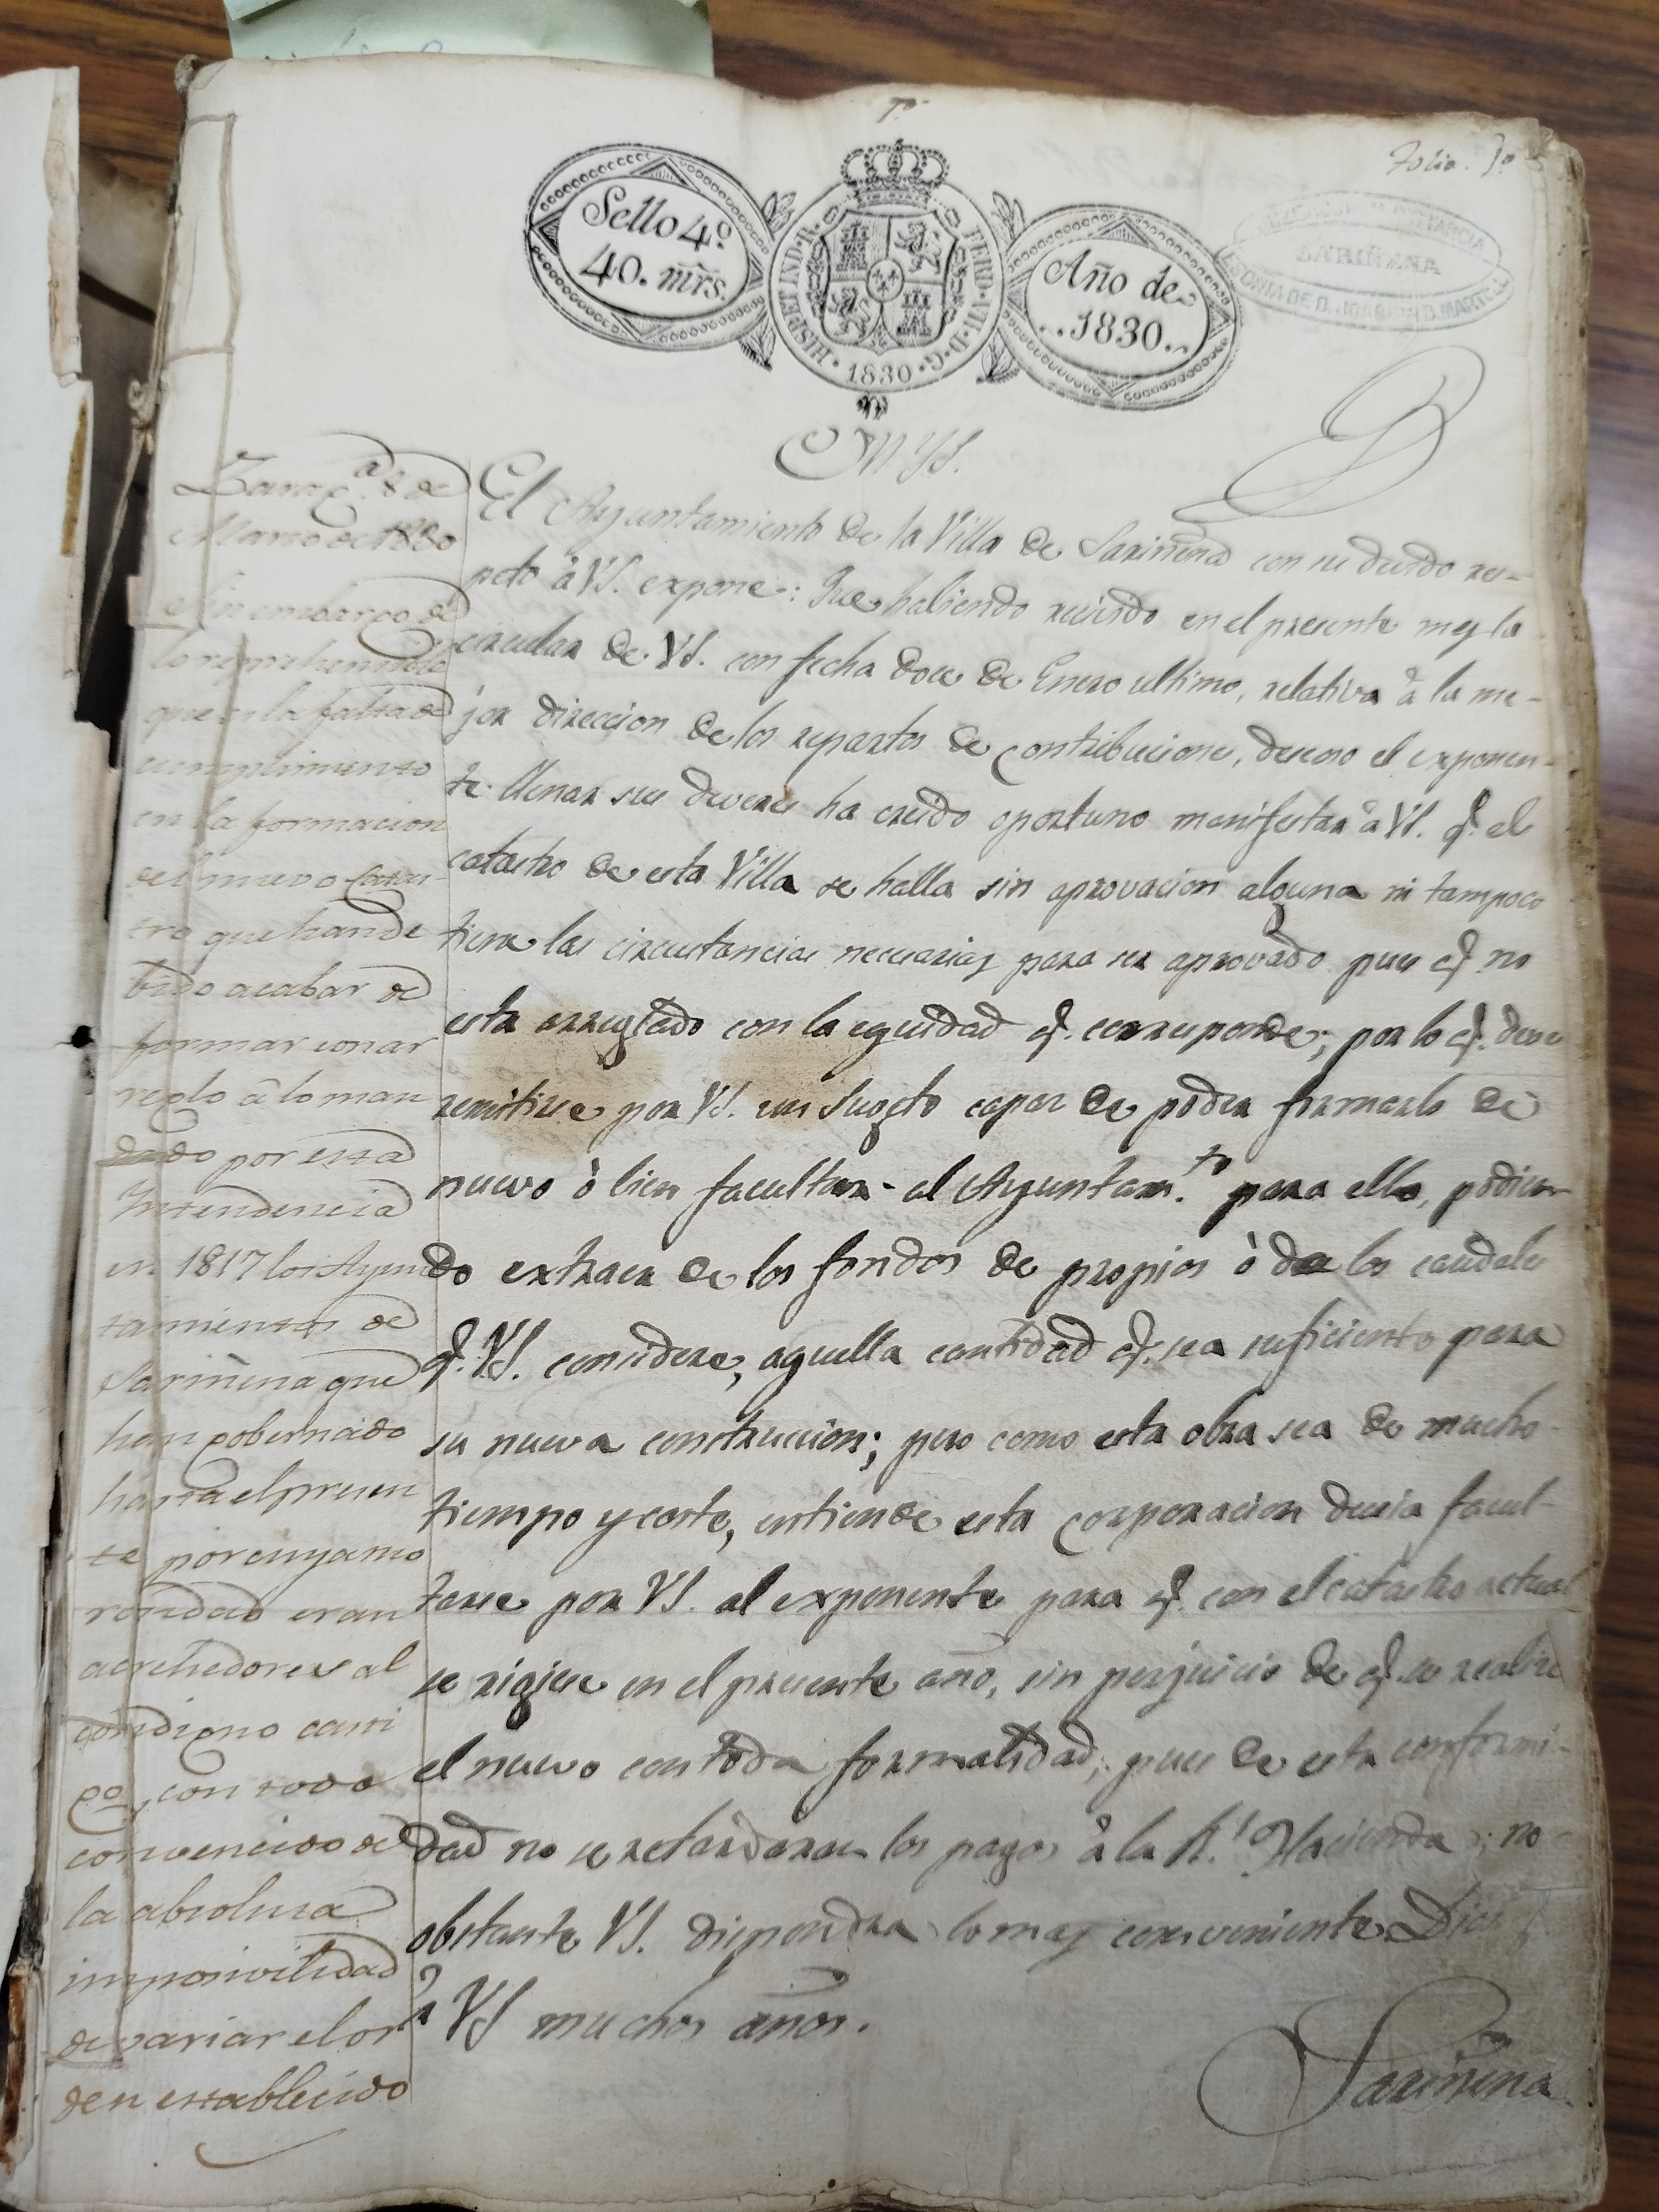 Folio. 1º
Sello 4º
40. mr̃s.
HISPET IND. R.
FERD. VII. D. G.
1830
Año de
1830.
SARIÑENA
M Y S.
El Ayuntamiento de la Villa de Sariñena con su devido res-
peto à VS. expone: Que habiendo recivido en el presente mes la
circular de VS. con fecha doce de Enero ultimo, relativa à la me-
jor direccion de los repartos de Contribucione, deseoso el exponen-
te llenar sus deveres ha creido oportuno manifestar à VS. q. el
catastro de esta Villa se halla sin aprovacion alguna ni tampoco
tiene las circustancias necesarias para ser aprovado pues q. no
esta arreglado con la eguidad q. corresponde; por lo q. deve
remitirse por VS. un Sugeto capaz de poder formarlo de
nuevo ò bien facultar al Ayuntam.to para ello, podien-
do extraer de los fondos de propios ò de los caudales
q. VS. considere, aquella cantidad q. sea suficiente para
su nueva construccion; pero como esta obra sea de mucho
tiempo y coste, entiende esta Corporacion devia facul-
tarse por VS. al exponente para q. con el catastro actual
se rigiese en el presente año, sin perjuicio de q. se realize
el nuevo con toda formalidad; pues de esta conformi-
dad no se retardaran los pagos à la R.l Hacienda; no
obstante VS. dispondra lo mas conveniente. Dios
à VS muchos años.
Sariñena
Zarag.a 8 de
Marzo de 1830
Sin embargo de
lo reprehensible
que es la falta de
cumplimiento
en la formacion
del nuevo Catas-
tro que han de
bido acabar de
formar con ar
reglo à lo man
dado por esta
Intendencia
en 1817 los Ayun
tamientos de
Sariñena que
han gobernado
hasta el presen
te, por cuya mo
rosidad eran
acrehedores al
condigno casti
go, con todo
convencido de
la absoluta
imposivilidad
de variar el or
den establecido